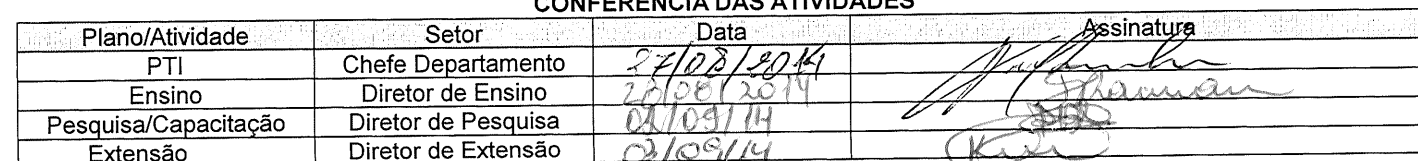 CONFERÊNCIA DAS ATIVIDADES
Plano/Atividade Setor Data Assinatura
PTI Chefe Departamento 27/08/2014
Ensino Diretor de Ensino 28/08/2014
Pesquisa/Capacitação Diretor de Pesquisa 02/09/14
Extensão Diretor de Extensão 03/09/14